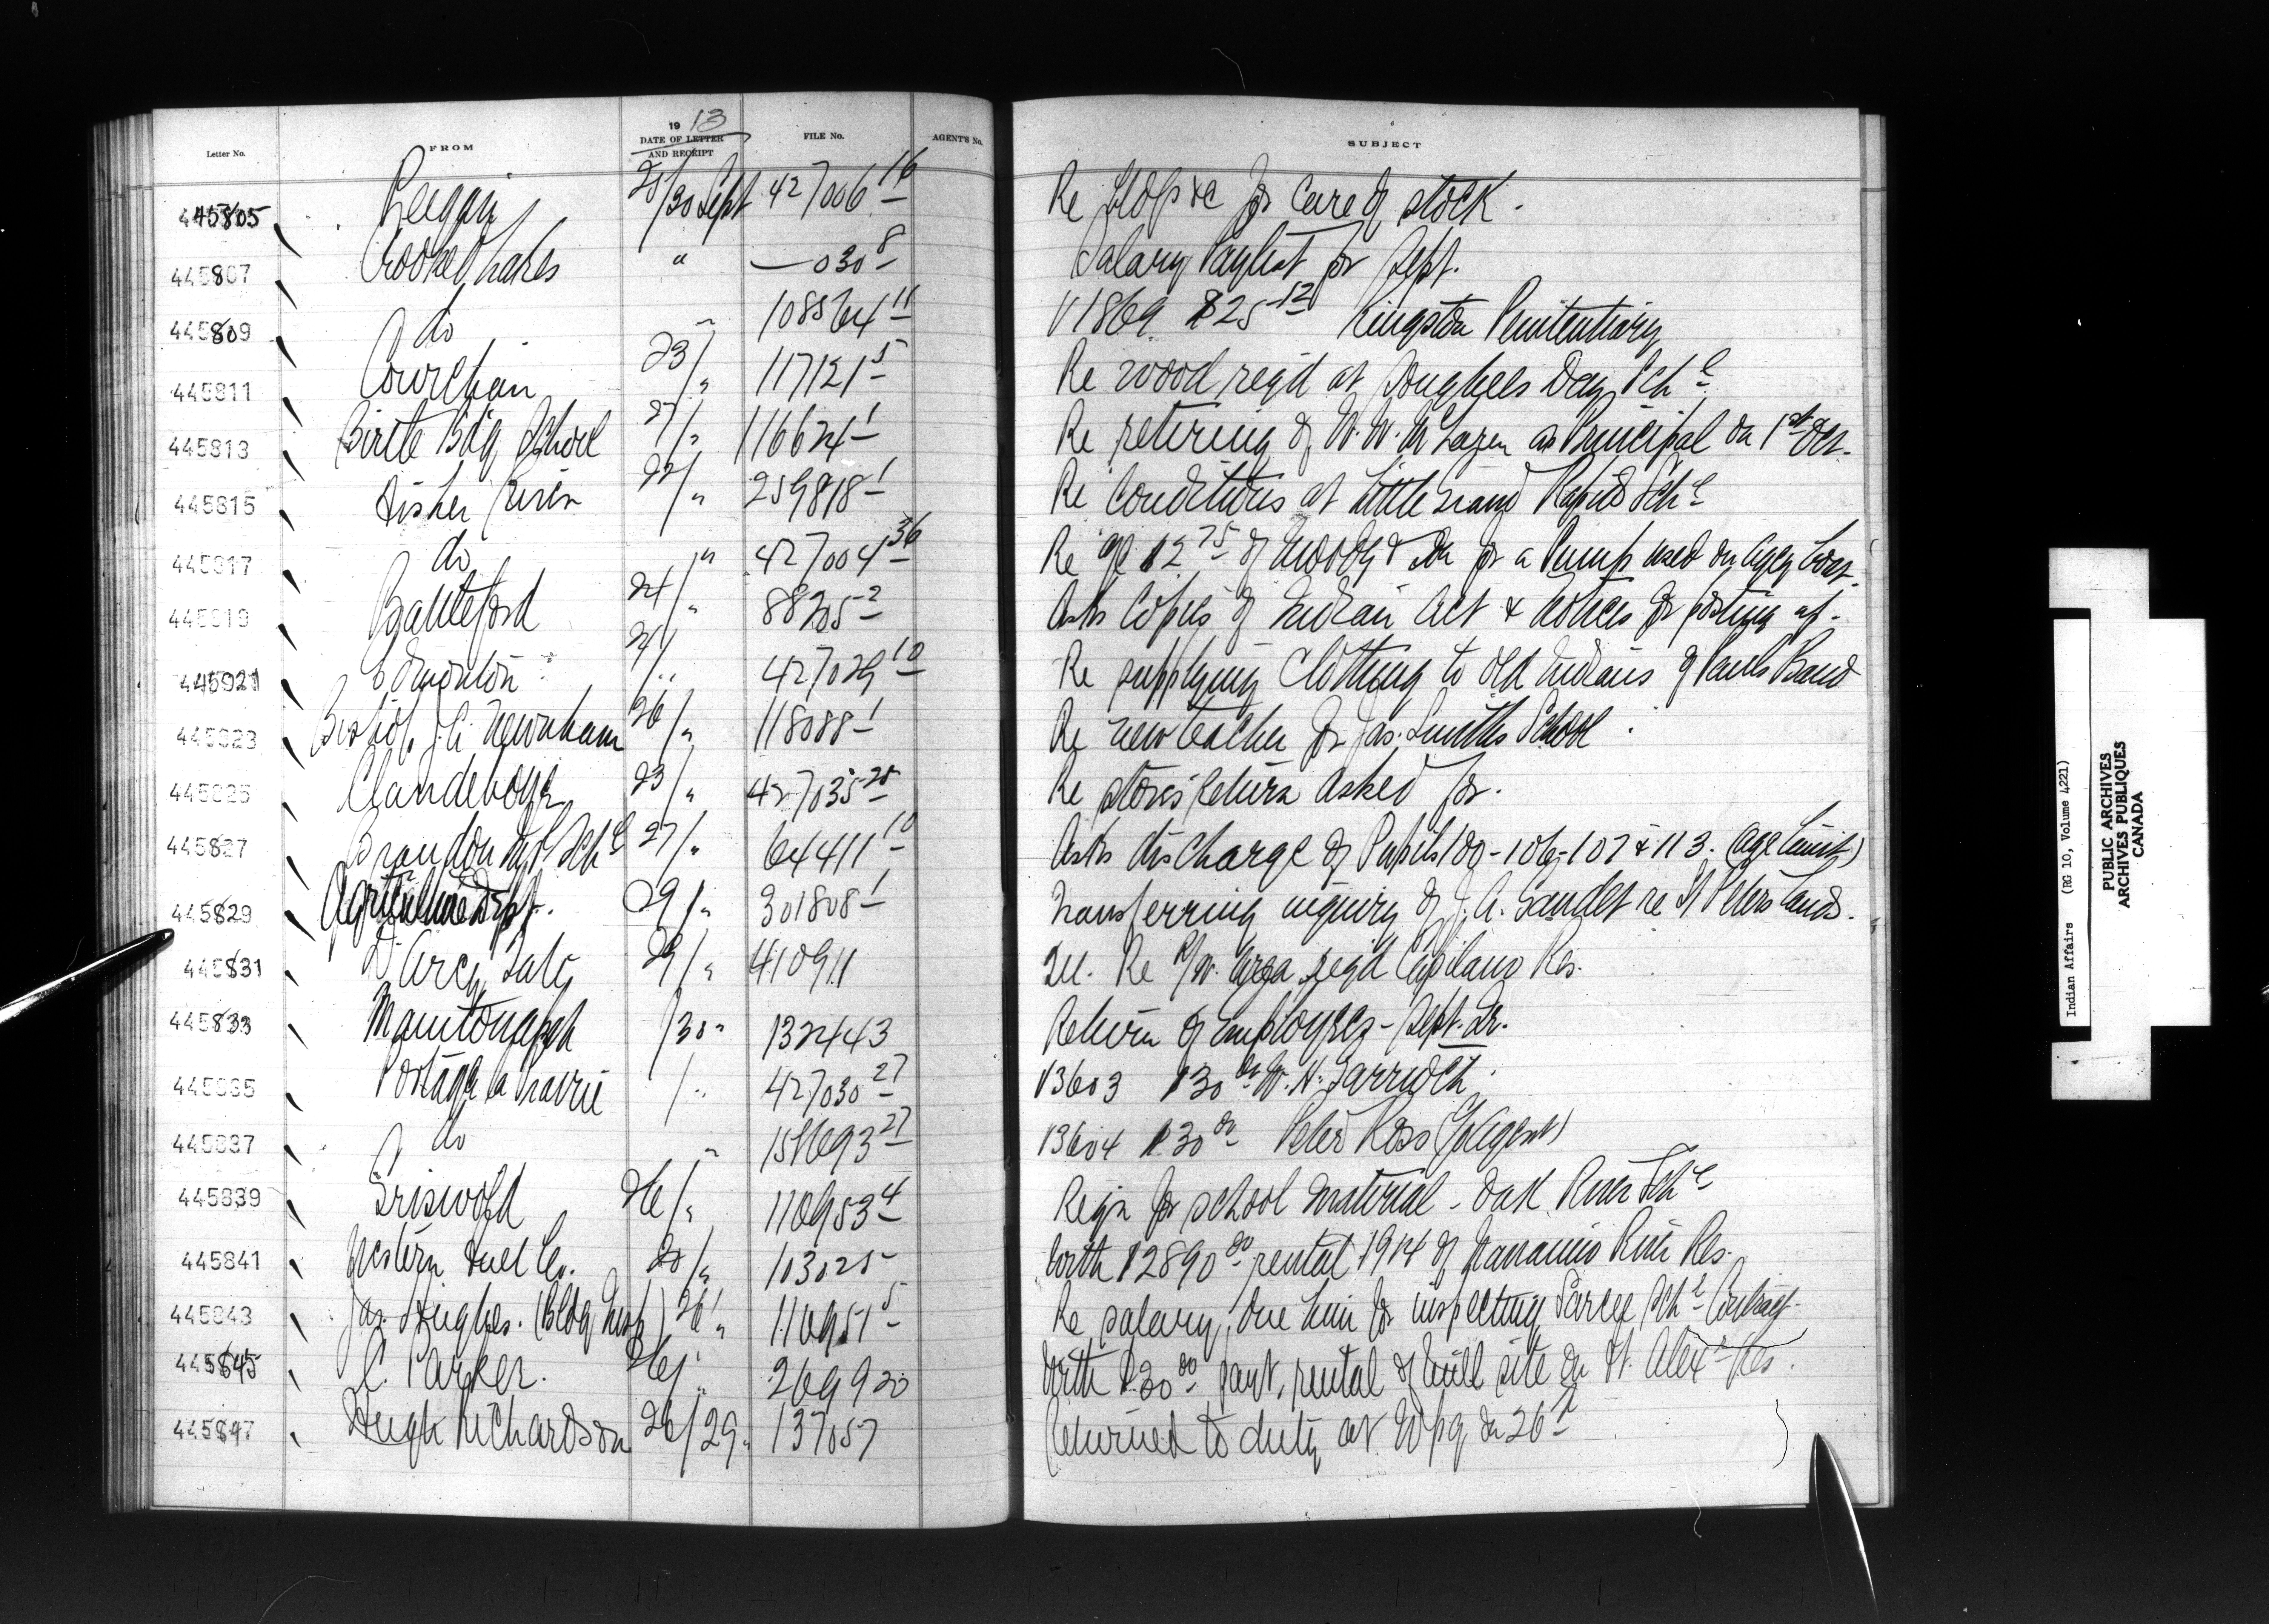 Letter No. FROM 1913 DATE OF LETTER AND RECEIPT FILE No. AGENT'S No. SUBJECT
445805 Peigan 25/30 Sept 427006-16 Re &c for care of stock.
445807 Crooked Lakes " —030-8 Salary Paylist for Sept.
445809 do " 108564-11 V1869 $25-12 Kingston Penitentiary
445811 Cowichan 23/" 117121-5 Re wood reqd at Day Schl
445813 Birtle Bdg School 27/" 116624-1 Re retiring of W. W. McLaren as Principal on 1st Oct.
445815 Fisher River 22/" 259818-1 Re Conditions at Little Grand Rapids Schl
445817 do " 427004-36 Re a/c $2.75 of & Son for a Pump used on Agcy boat.
445819 Battleford 24/" 88205-2 Asks Copies of Indian Act & Notices for posting up.
445821 Edmonton 24/" 427029-10 Re supplying Clothing to old Indians of Pauls Band
445823 Bishop J. A. Newnham 26/" 118088-1 Re new teacher for Jas. Smith's School
445825 Clandeboye 23/" 427035-25 Re stores return asked for.
445827 Brandon Schl 27/" 64411-10 Asks discharge of Pupils 100-106-107 & 113. (age limit)
445829 Agriculture Dept. 29/" 301808-1 Transferring inquiry of J. A. re St Peters Lands.
445831 D'Arcy Tate 29/" 410911 Re R/W. area reqd Capilano Res.
445833 Manitowapah /30" 132443 Return of employees - Sept. Qr.
445835 Portage la Prairie /" 427030-27 V3603 $30.00 W. H.
445837 do " 151693-27 V3604 $30.00 Peter Ross
445839 Griswold 26/" 116953-4 Reqn for school material - Oak River Schl
445841 Western Fuel Co. 20/" 103025 With $2890.00 rental 1914 of Nanaimo River Res.
445843 Jas. Hughes. (Bldg Insp) 26/" 116951-5 Re salary due him for inspecting Sarcee Schl
445845 C. Parker. 26/" 269920 With $20.00 payt, rental of mill site on W. Alexr Res.
445847 Hugh Richardson 26/29" 137057 Returned to duty at Wpg on 26th
Indian Affairs (RG 10, Volume 4221)
PUBLIC ARCHIVES
ARCHIVES PUBLIQUES
CANADA